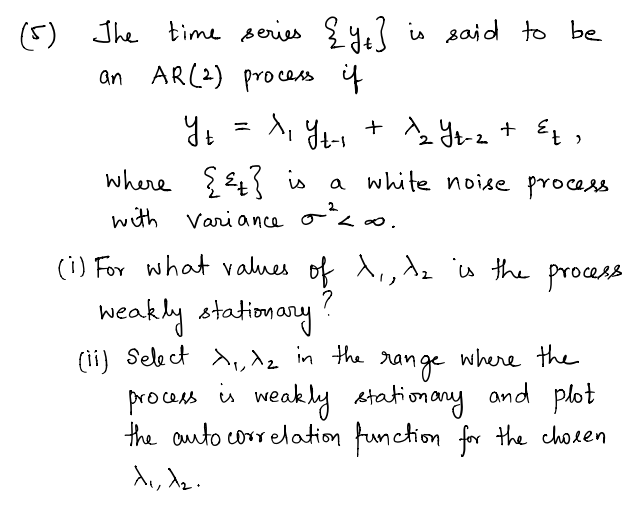 (5) The time series {y_t} is said to be
an AR(2) process if
y_t = λ₁ y_{t-1} + λ₂ y_{t-2} + ε_t ,
where {ε_t} is a white noise process
with variance σ² < ∞.
(i) For what values of λ₁, λ₂ is the process
weakly stationary?
(ii) Select λ₁, λ₂ in the range where the
process is weakly stationary and plot
the autocorrelation function for the chosen
λ₁, λ₂.